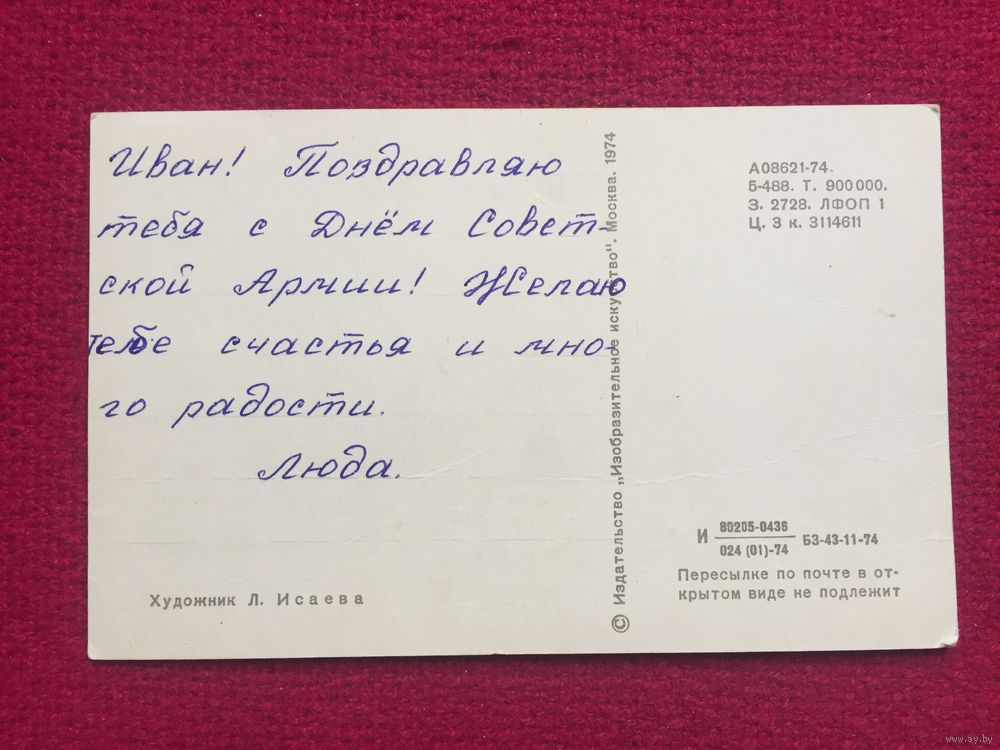 Иван! Поздравляю
тебя с Днём Совет-
ской Армии! Желаю
тебе счастья и мно-
го радости.
Люда.
Художник Л. Исаева
© Издательство „Изобразительное искусство“. Москва. 1974
А08621-74.
Б-488. Т. 900000.
З. 2728. ЛФОП 1
Ц. 3 к. 3114611
И 80205-0436
024 (01)-74 БЗ-43-11-74
Пересылке по почте в от-
крытом виде не подлежит
www.ay.by